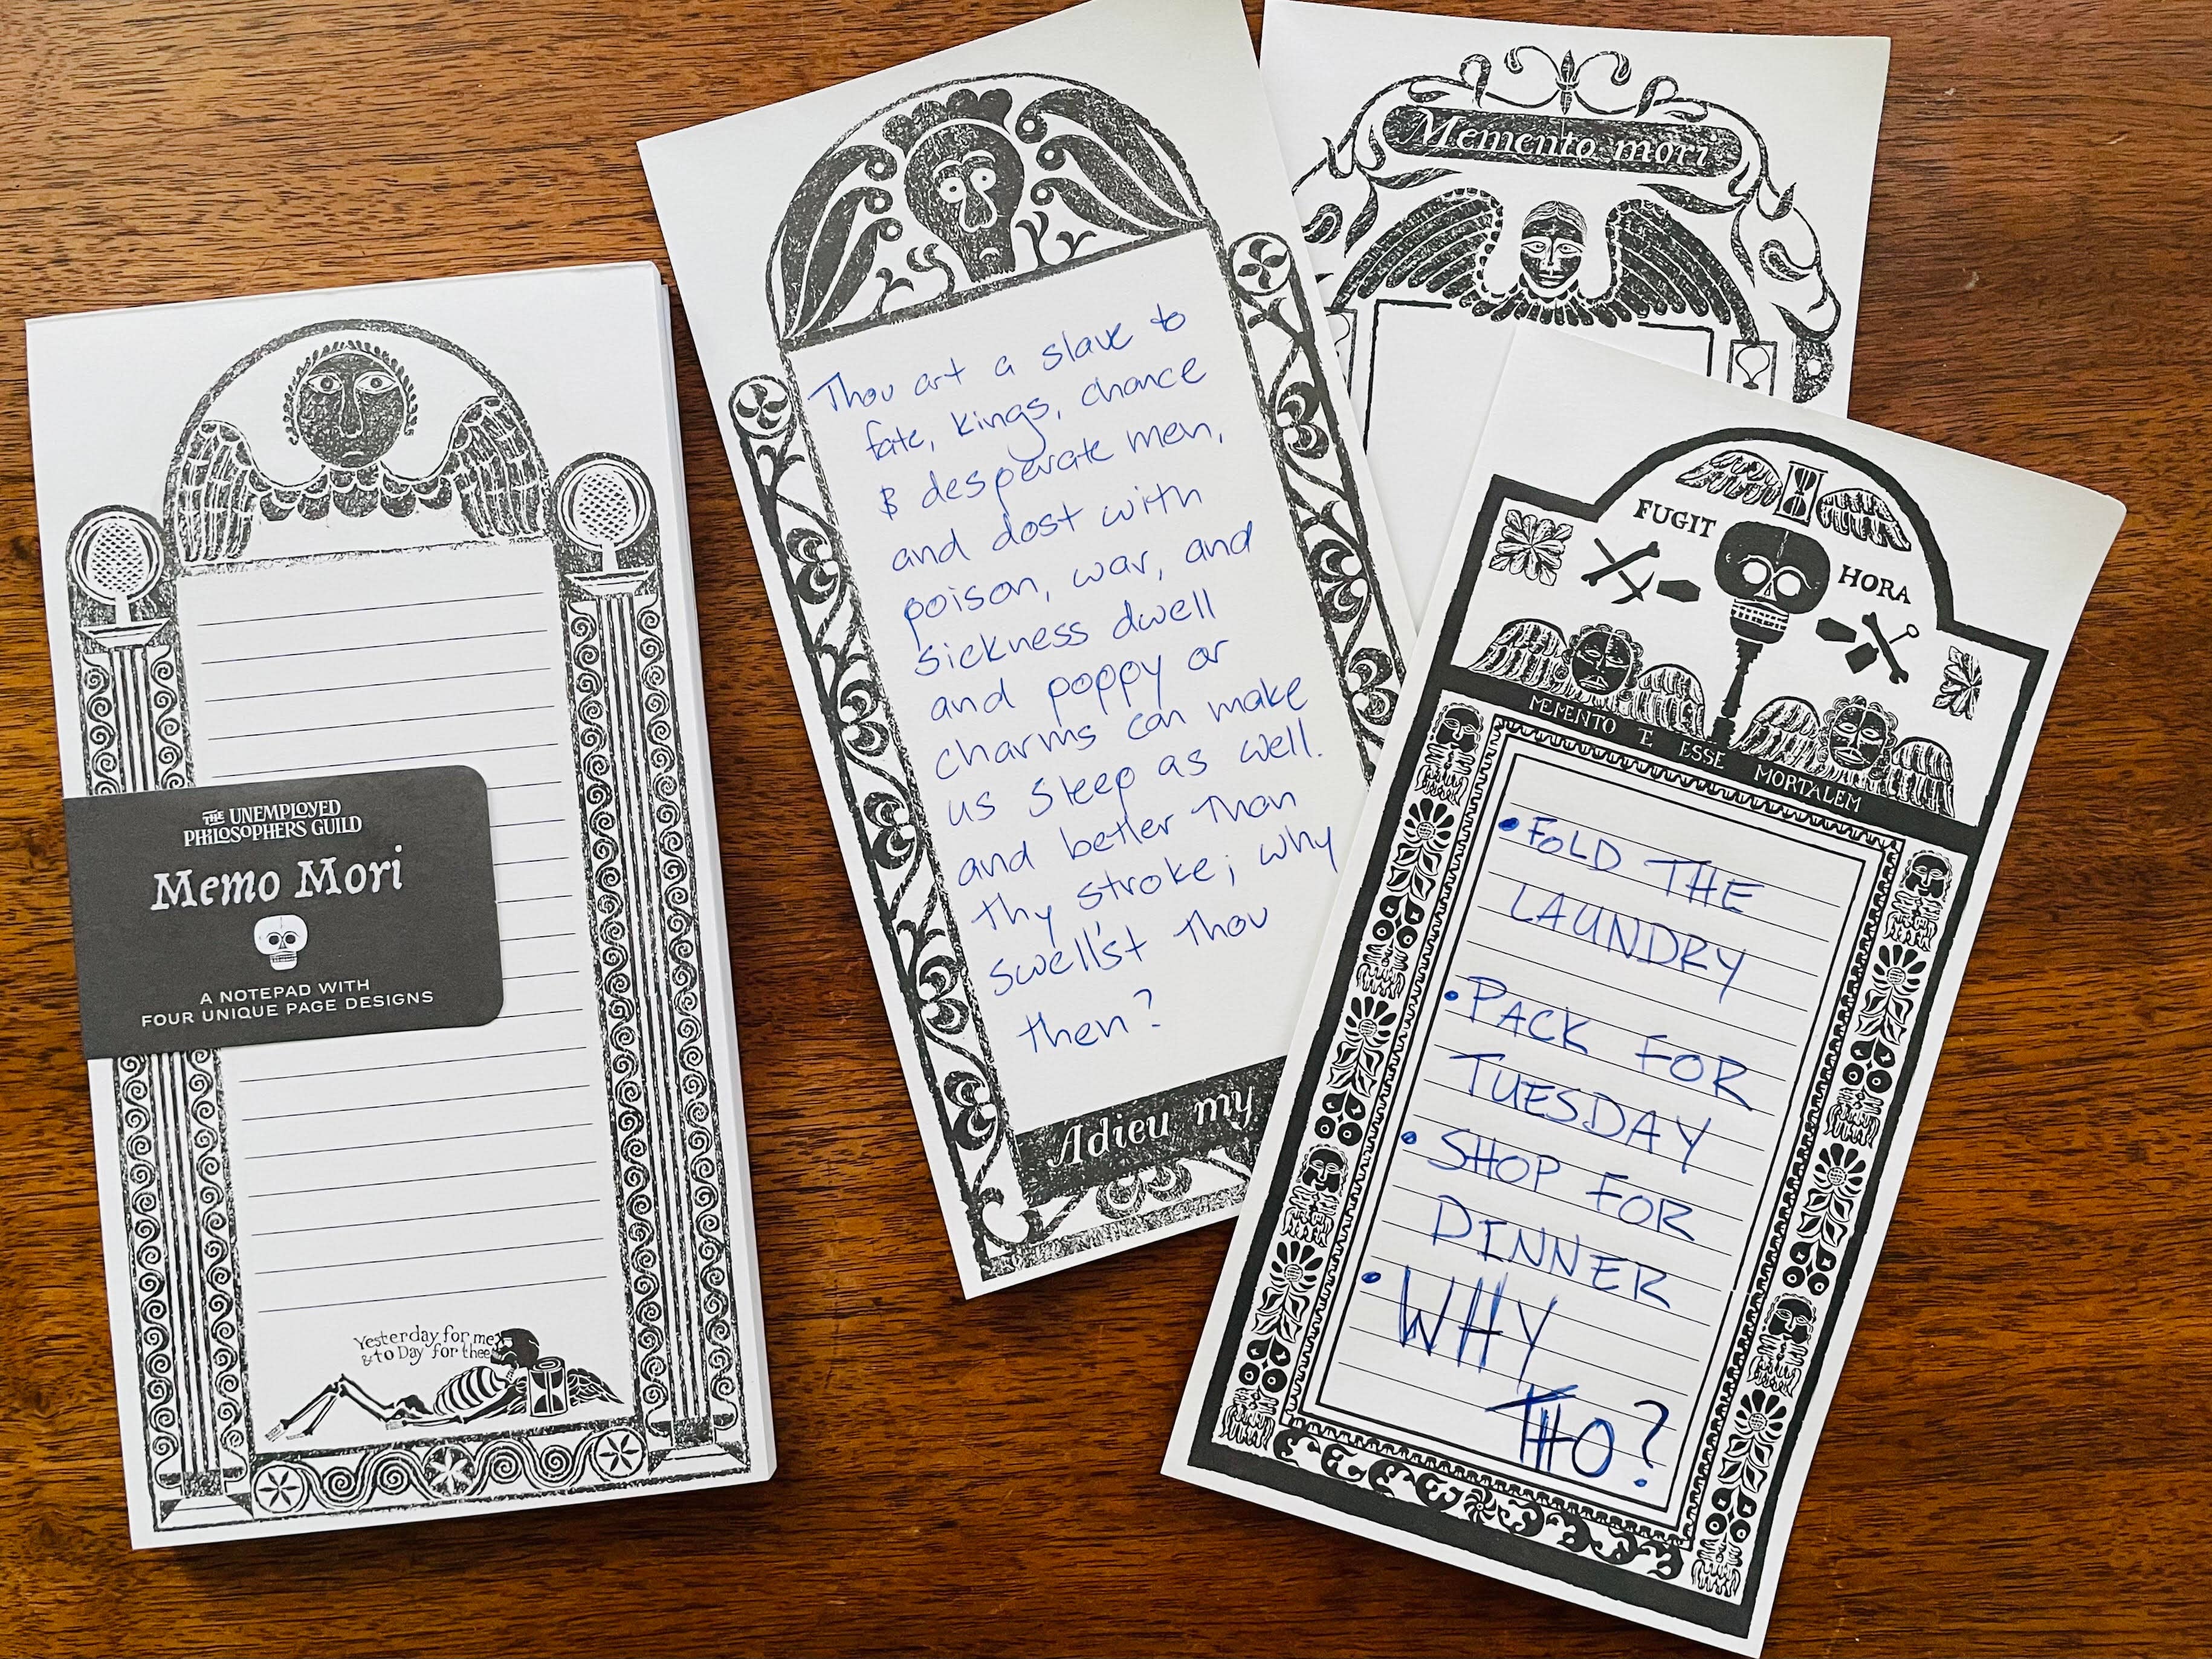 THE UNEMPLOYED
PHILOSOPHERS GUILD
Memo Mori
A NOTEPAD WITH
FOUR UNIQUE PAGE DESIGNS
Yesterday for me
& to Day for thee
Thou art a slave to
fate, kings, chance
& desperate men,
and dost with
poison, war, and
sickness dwell
and poppy or
charms can make
us sleep as well.
and better than
thy stroke; why
swell'st thou
then?
Adieu my
Memento mori
FUGIT HORA
MEMENTO TE ESSE MORTALEM
• FOLD THE
LAUNDRY
• PACK FOR
TUESDAY
• SHOP FOR
DINNER
• WHY
THO?